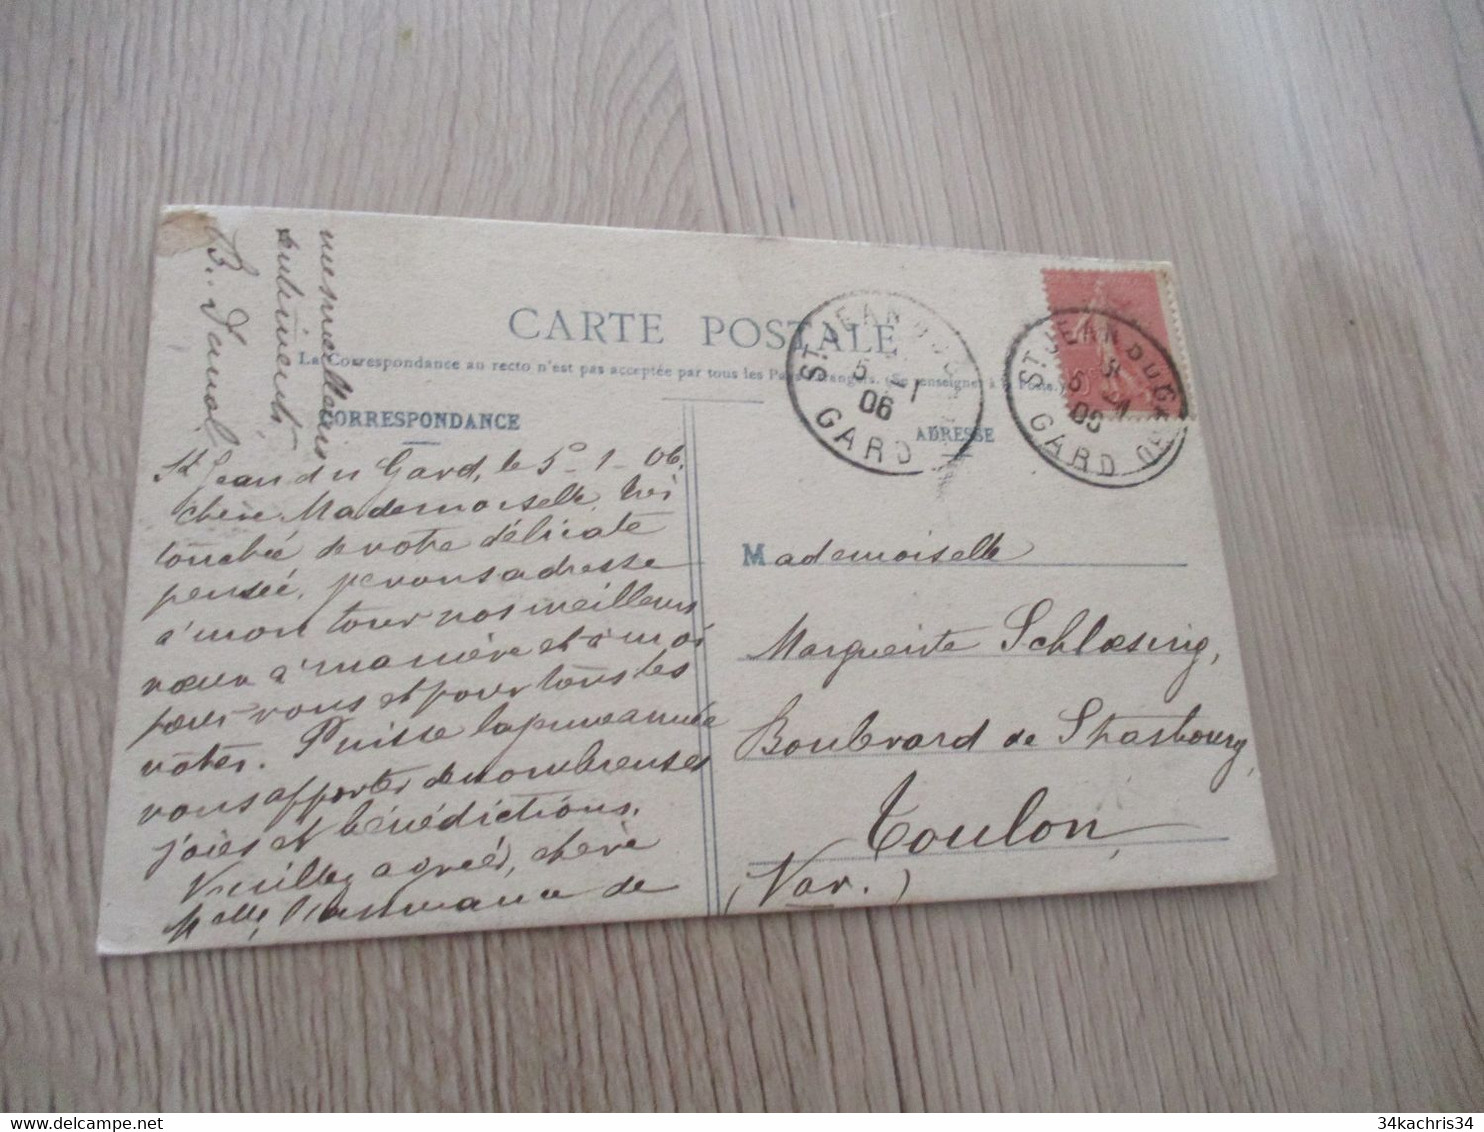 CARTE POSTALE
La Correspondance au recto n'est pas acceptée par tous les Pays étrangers. (Se renseigner à la Poste.)
CORRESPONDANCE
ADRESSE
St Jean du Gard, le 5-1-06.
Chère Mademoiselle, très
touchée de votre délicate
pensée, je vous adresse
à mon tour nos meilleurs
vœux à ma mère et à moi
pour vous et pour tous les
vôtres. Puisse la jeune année
vous apporter de nombreuses
joies et bénédictions.
Veuillez agréer, chère
Melle, l'assurance de
mes meilleurs
sentiments
B.
Mademoiselle
Marguerite Schlœsing,
Boulevard de Strasbourg,
Toulon
(Var.)
ST JEAN DU GARD
5 -1
06
GARD
ST JEAN DU GARD
5 -1
06
GARD
34kachris34